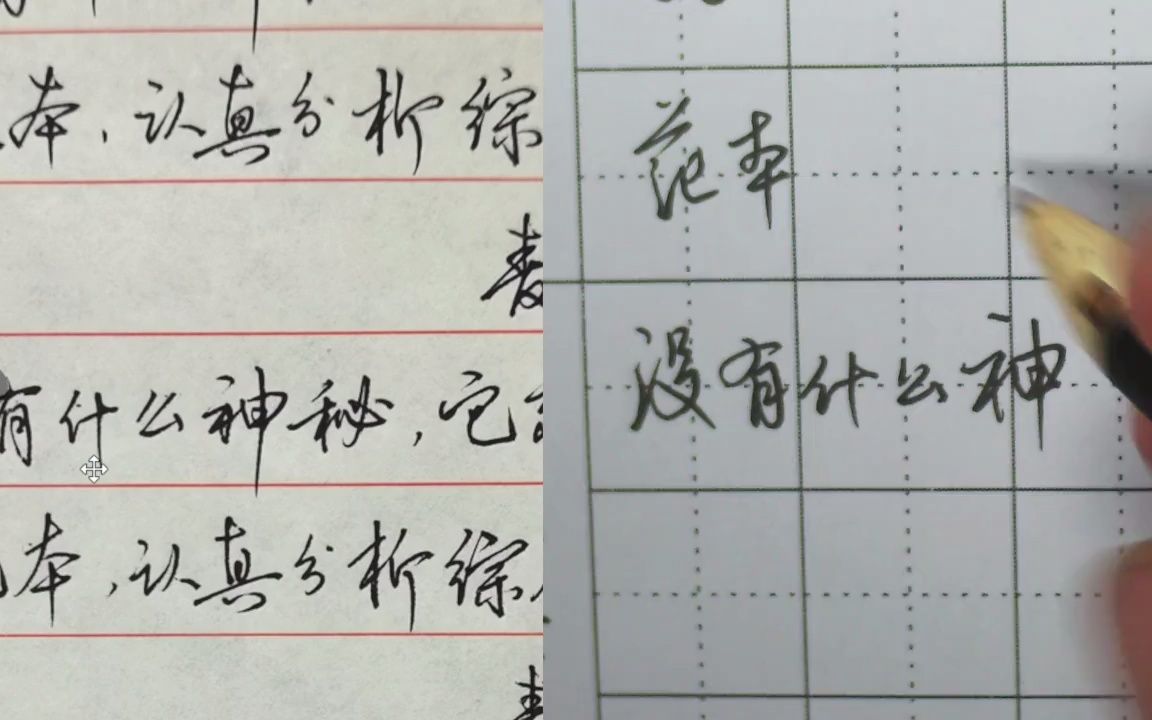 本，认真分析综
有什么神秘，它
本，认真分析综
范本
没有什么神